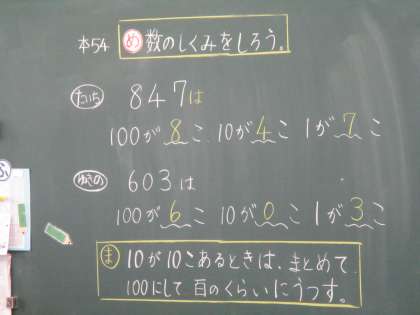 本54 め 数のしくみをしろう。
たいち 847は
100が8こ 10が4こ 1が7こ
ゆきの 603は
100が6こ 10が0こ 1が3こ
ま 10が10こあるときは、まとめて
100にして百のくらいにうつす。